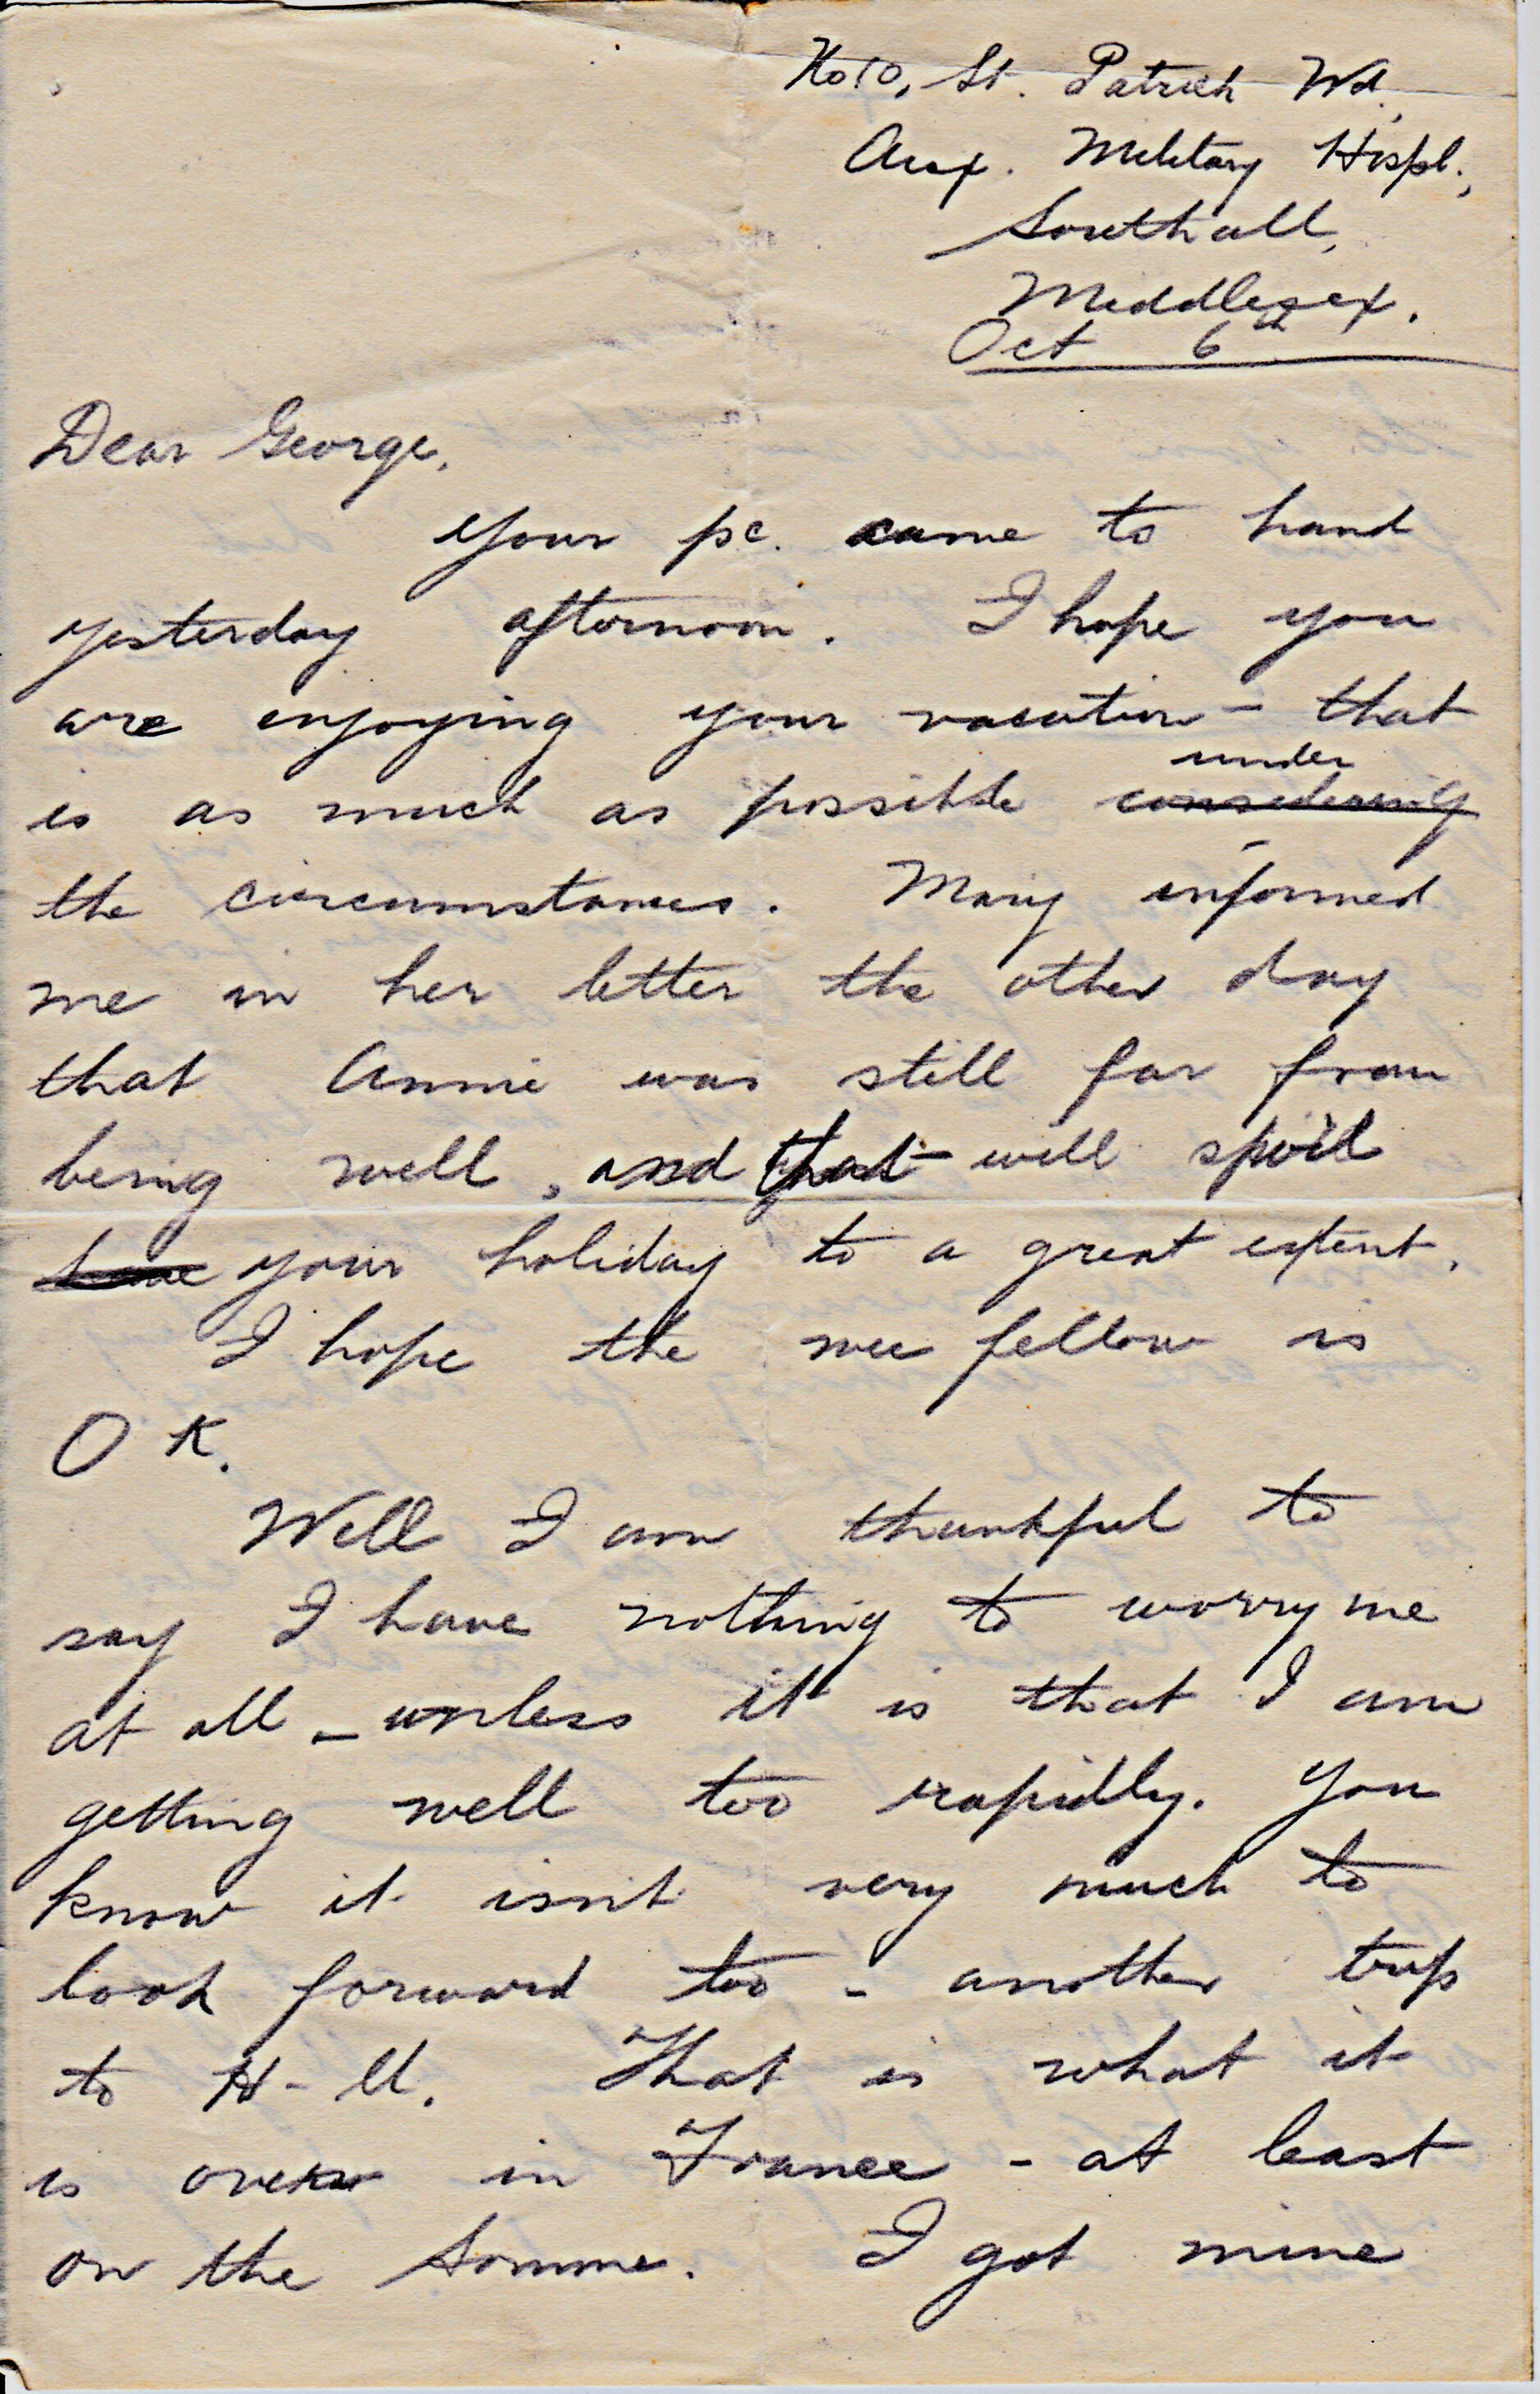 No 10, St. Patrick Wd.,
Aux. Military Hospl.,
Southall,
Middlesex.
Oct 6th
Dear George,
Your pc. came to hand
yesterday afternoon. I hope you
are enjoying your vacation - that
under
is as much as possible considering
the circumstances. Mary informed
me in her letter the other day
that Annie was still far from
being well, and that will spoil
have your holiday to a great extent.
I hope the wee fellow is
O K.
Well I am thankful to
say I have nothing to worry me
at all - unless it is that I am
getting well too rapidly. You
know it isn't very much to
look forward too - another trip
to H-ll. That is what it
is over in France - at least
on the Somme. I got mine